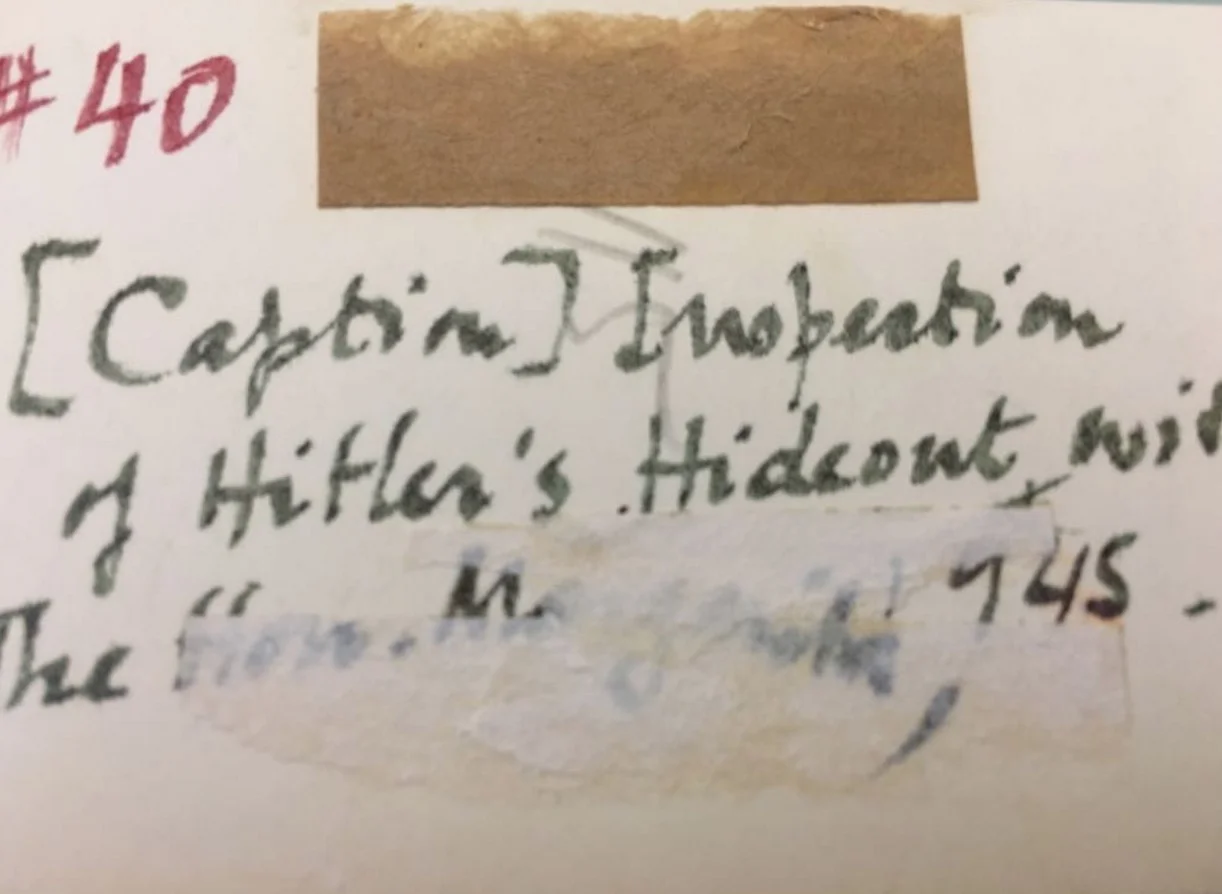 #40
[Caption] Inspection
of Hitler's Hideout, wit
The "Hon. M. '45 -